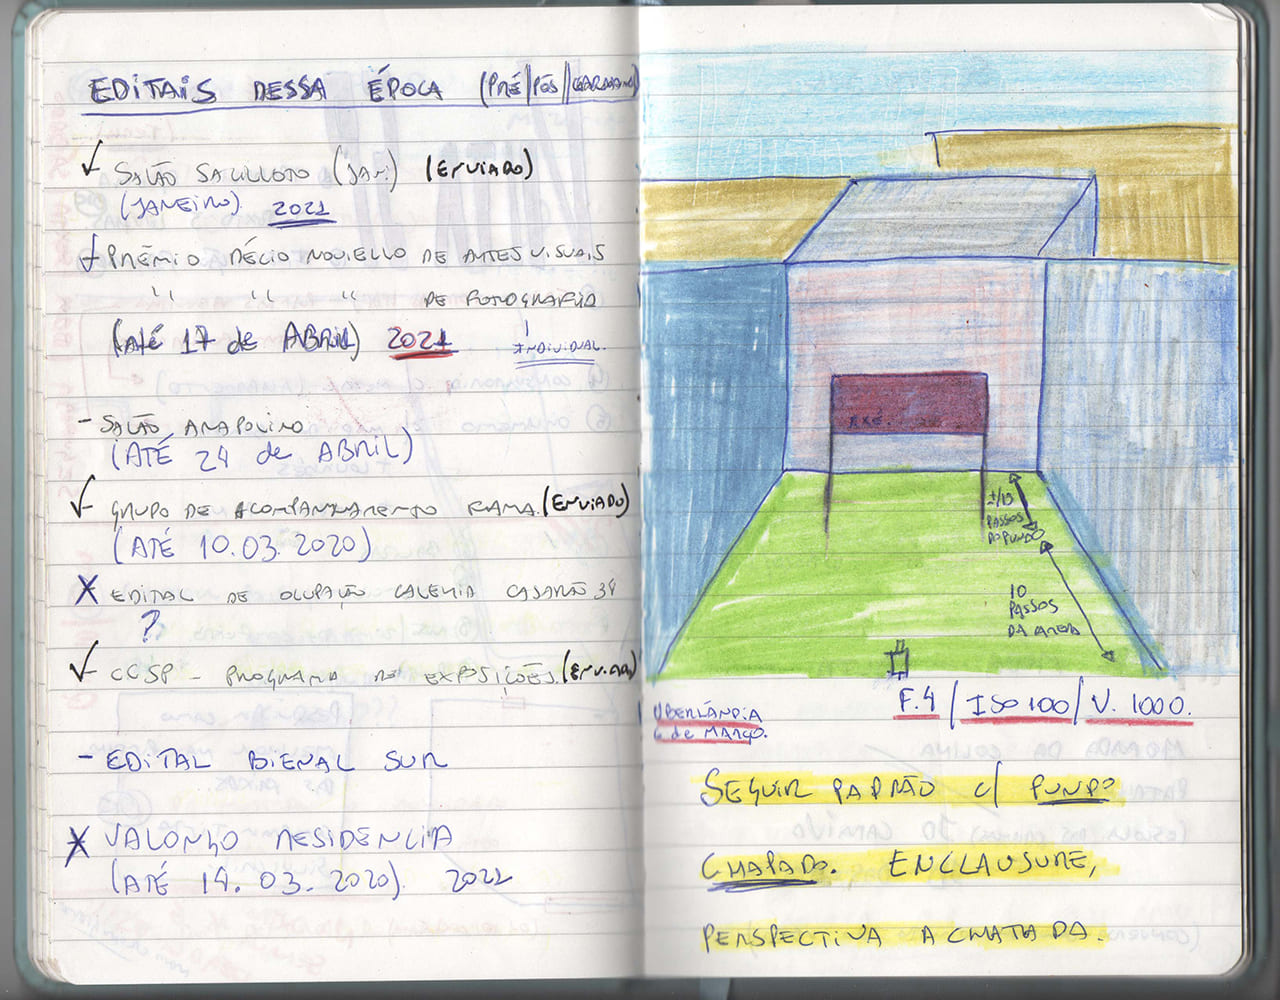 EDITAIS DESSA ÉPOCA (PRÉ/PÓS//CARNAVAL)
SALÃO SACILLOTO (JAN) (ENVIADO)
(JANEIRO) 2021
PRÊMIO DÉCIO NOVIELLO DE ARTES VISUAIS
" " " DE FOTOGRAFIA
(ATÉ 17 de ABRIL) 2021
INDIVIDUAL.
- SALÃO ANAPOLINO
(ATÉ 24 de ABRIL)
GRUPO DE ACOMPANHAMENTO (ENVIADO)
(ATÉ 10.03.2020)
X EDITAL DE OCUPAÇÃO GALERIA CASARÃO 34
?
CCSP - PROGRAMA DE EXPOSIÇÕES. (ENVIADO)
- EDITAL BIENAL SUR
X VALONGO RESIDENCIA
(ATÉ 14.03.2020). 2021
EXÉ.
+/10
PASSOS
DO FUNDO
10
PASSOS
DA
UBERLÂNDIA
6 de MARÇO.
F.4 / ISO 100 / V. 1000.
SEGUIR PADRÃO C/ FUNDO
CHAPADO. ENCLAUSURE,
PERSPECTIVA ACHATADA.